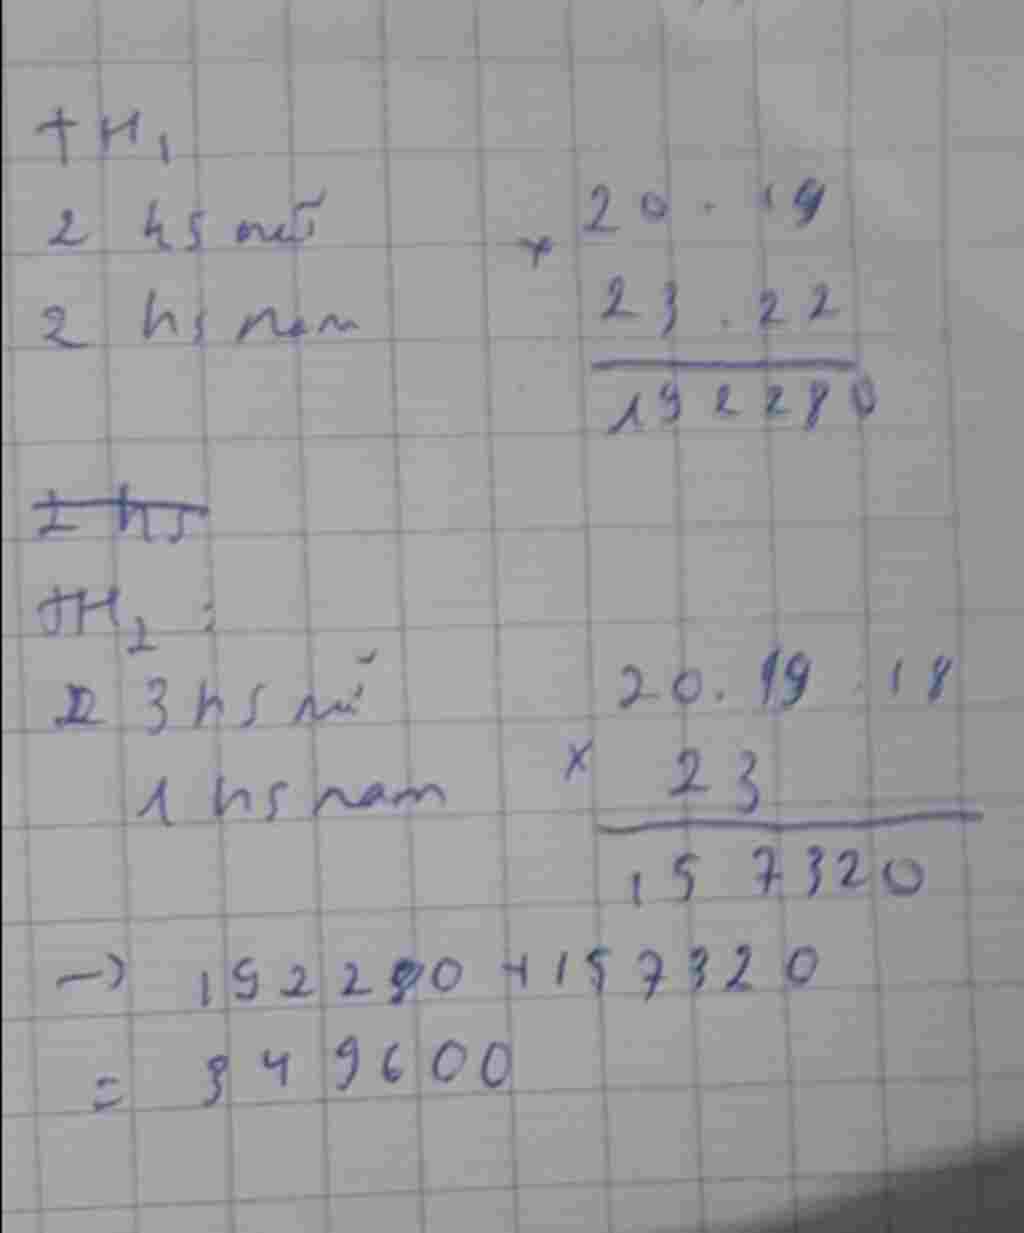 TH1
2 hs nữ
2 hs nam
20 . 19
x 23 . 22
192280
1 hs
TH2 :
3 hs nữ
1 hs nam
20 . 19 . 18
x 23
157320
→ 192280 + 157320
= 349600